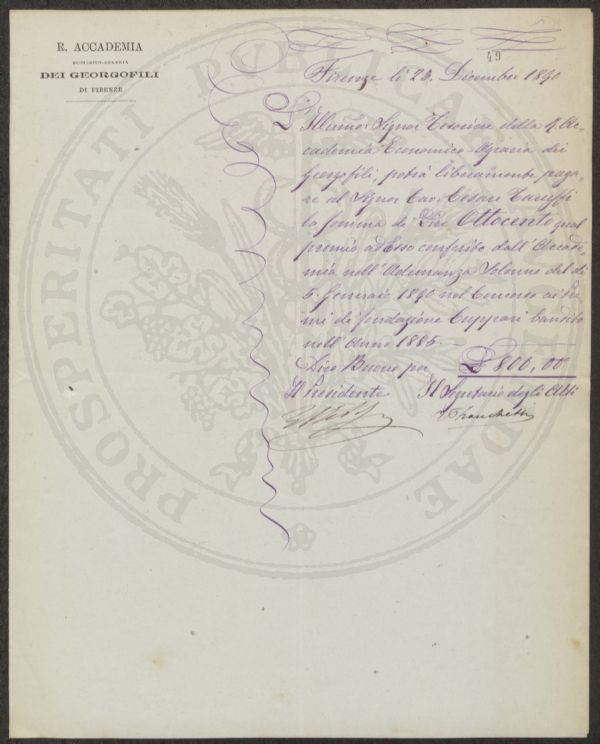 R. ACCADEMIA
ECONOMICO-AGRARIA
DEI GEORGOFILI
DI FIRENZE
49
Firenze li 23. Dicembre 1890
L'Illumo: Signor Tesoriere della R. Ac-
cademia Economico-Agraria dei
Georgofili, potrà liberamente paga-
re al Signor Cav. Cesare Taruffi
la somma di Lire Ottocento qual
premio ad Esso conferito dall'Accade-
mia nell'Adunanza Solenne del dì
5. Gennaio 1890 nel Concorso ai Pre-
mi di fondazione Cuppari bandito
nell'Anno 1885.
Dico Buono per £ 800,00
Il Presidente Il Segretario degli Atti
Franchetti
PROSPERITATI PUBLICAE